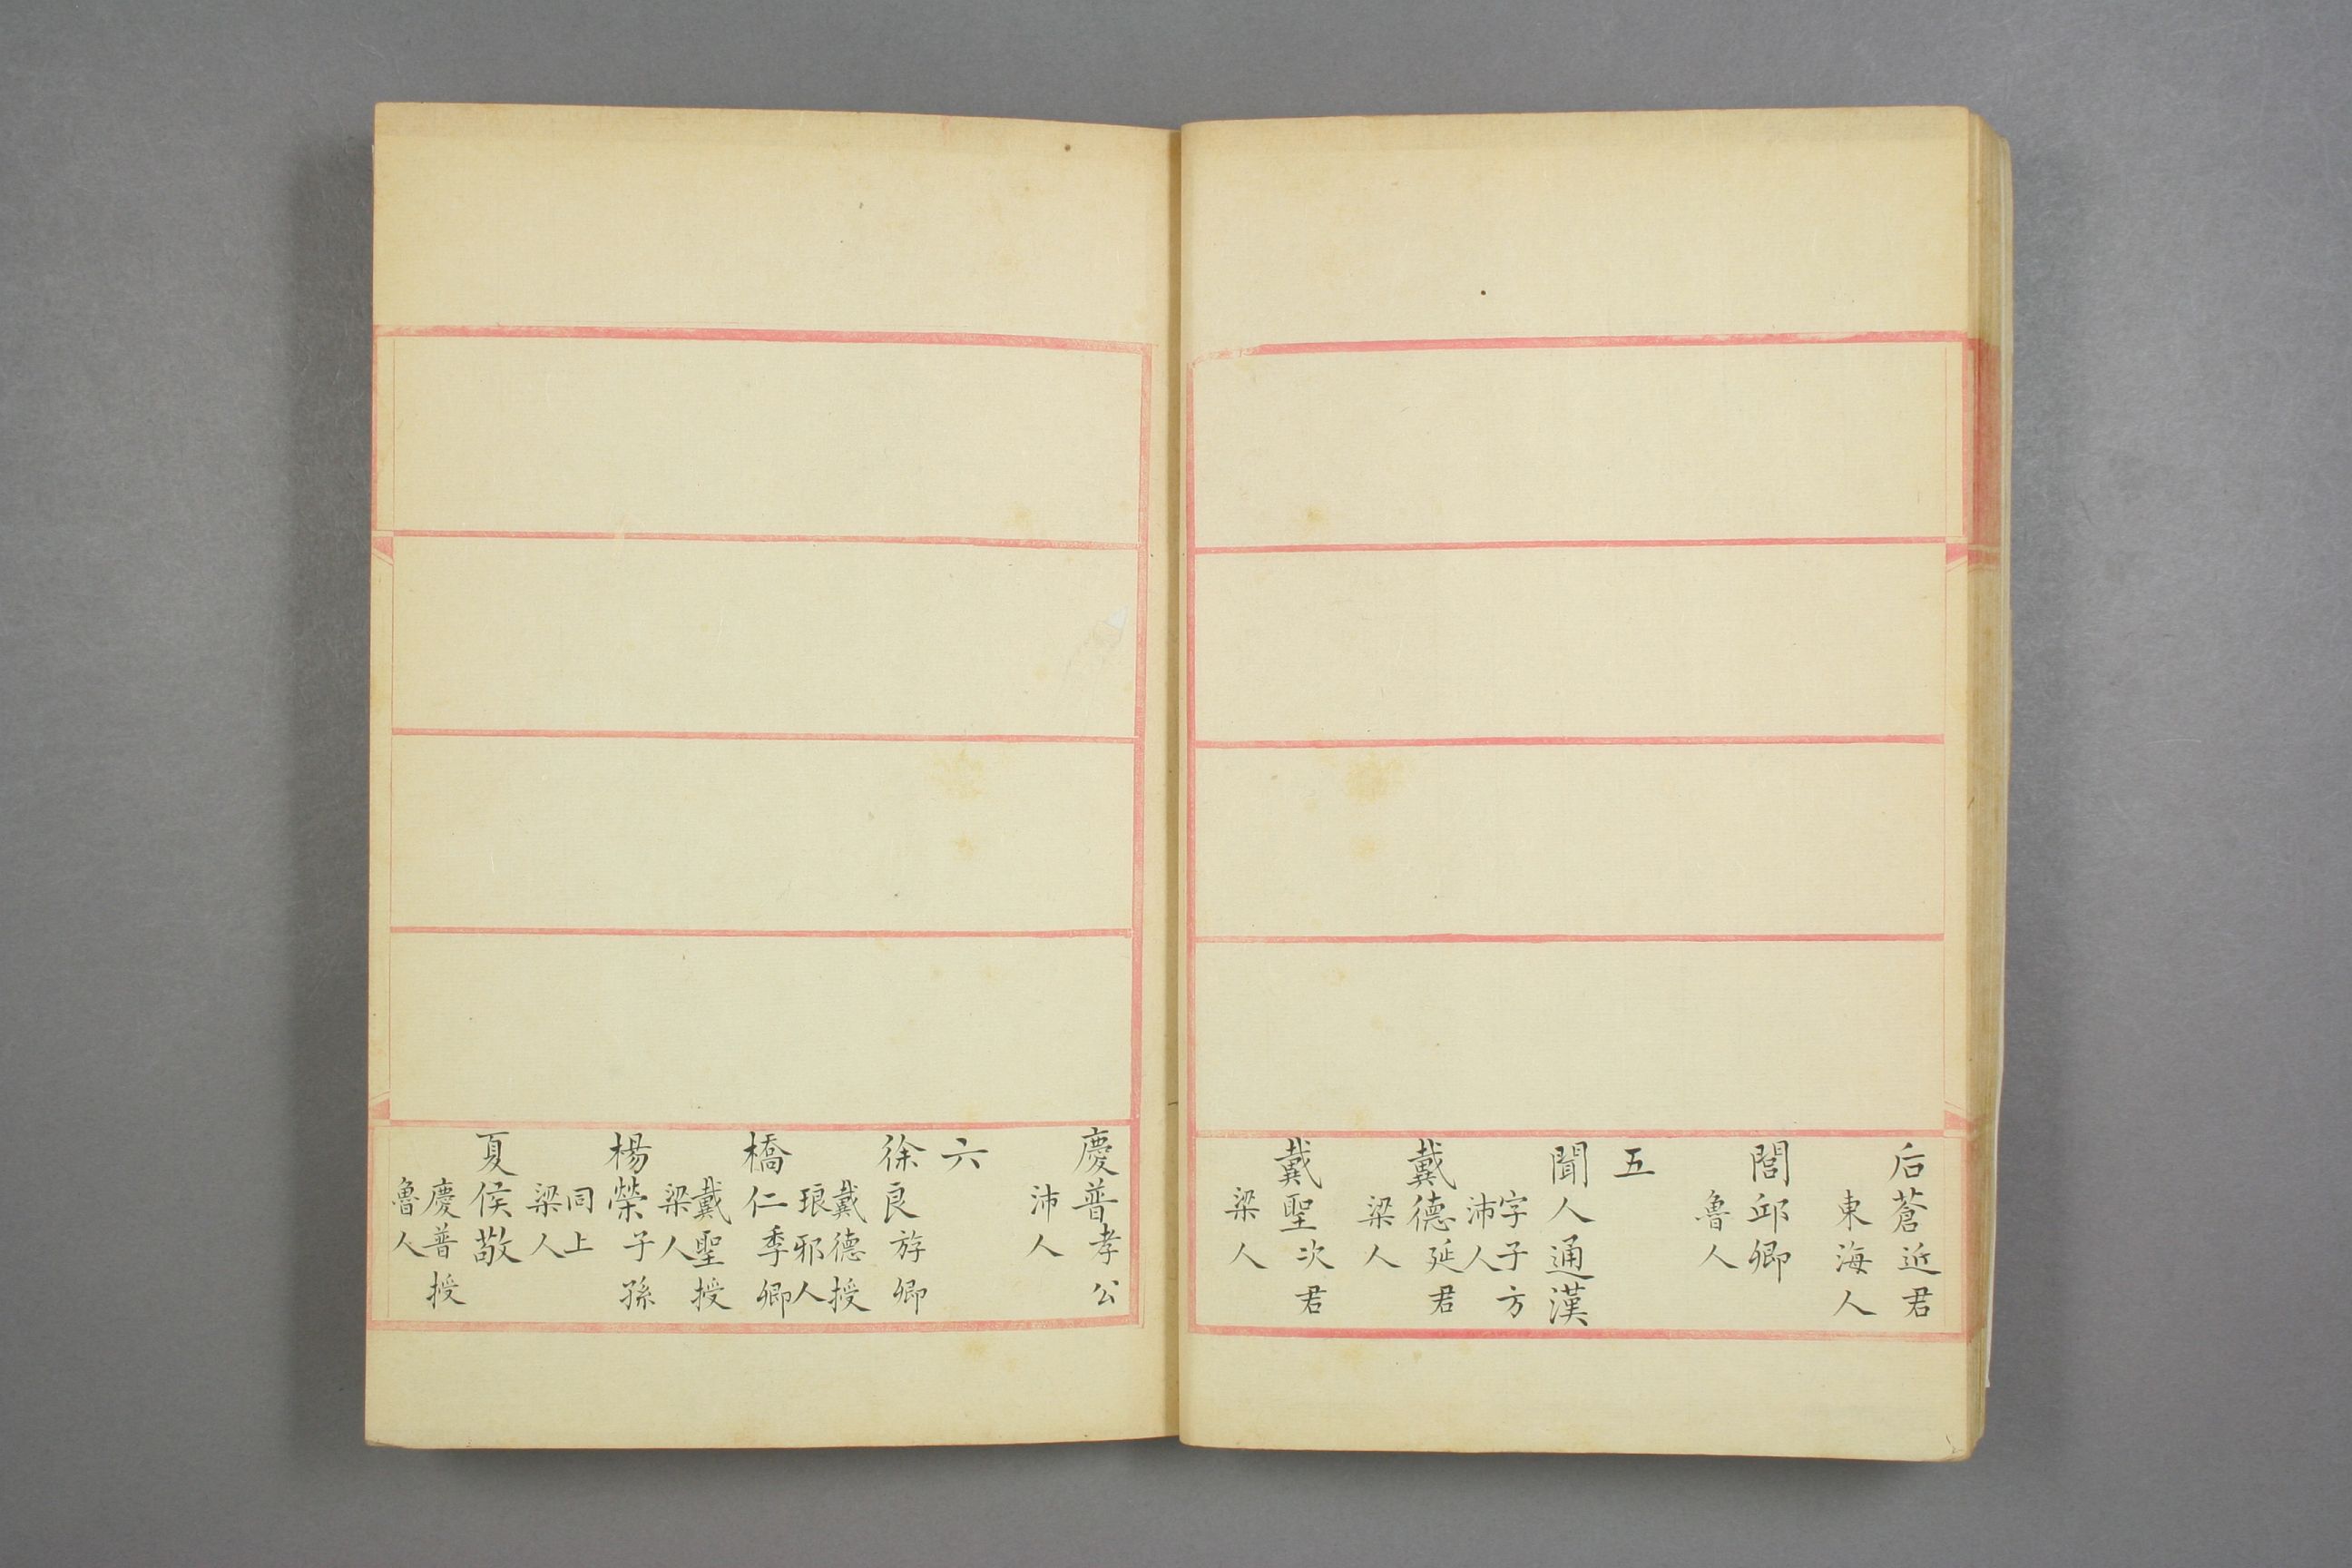 后蒼近君
東海人
閭邱卿
魯人
五
聞人通漢
字子方
沛人
戴德延君
梁人
戴聖次君
梁人
慶普孝公
沛人
六
徐良斿卿
戴德授
琅邪人
橋仁季卿
戴聖授
梁人
楊榮子孫
同上
梁人
夏侯敬
慶普授
魯人